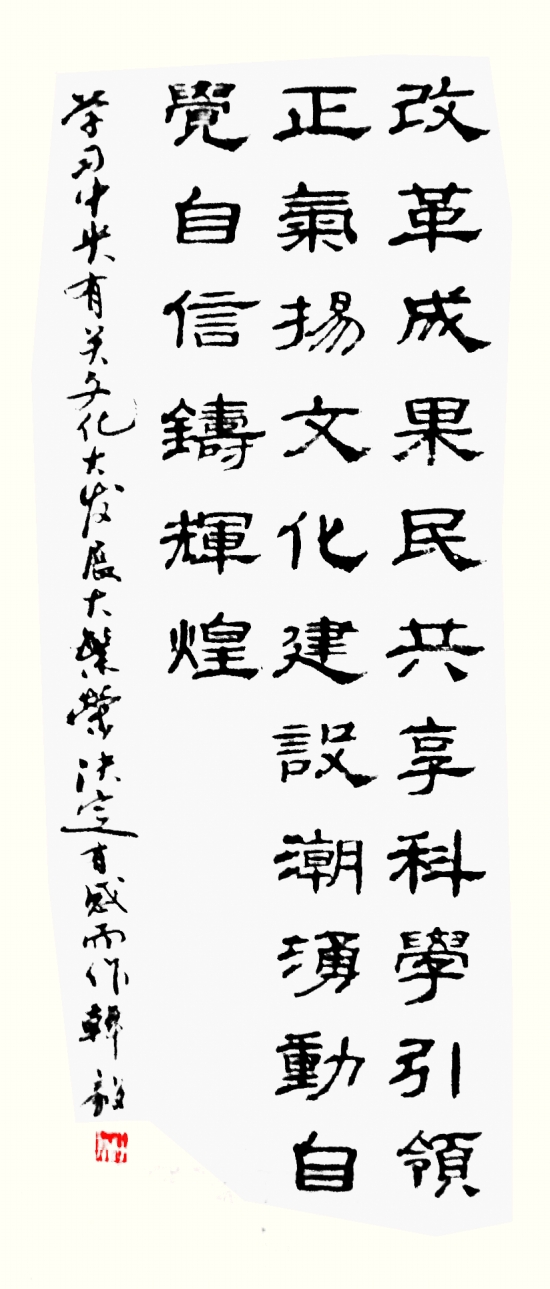 改革成果民共享科學引領
正氣揚文化建設潮湧動自
覺自信鑄輝煌
学习中央有关文化大发展大繁榮决定有感而作韓毅